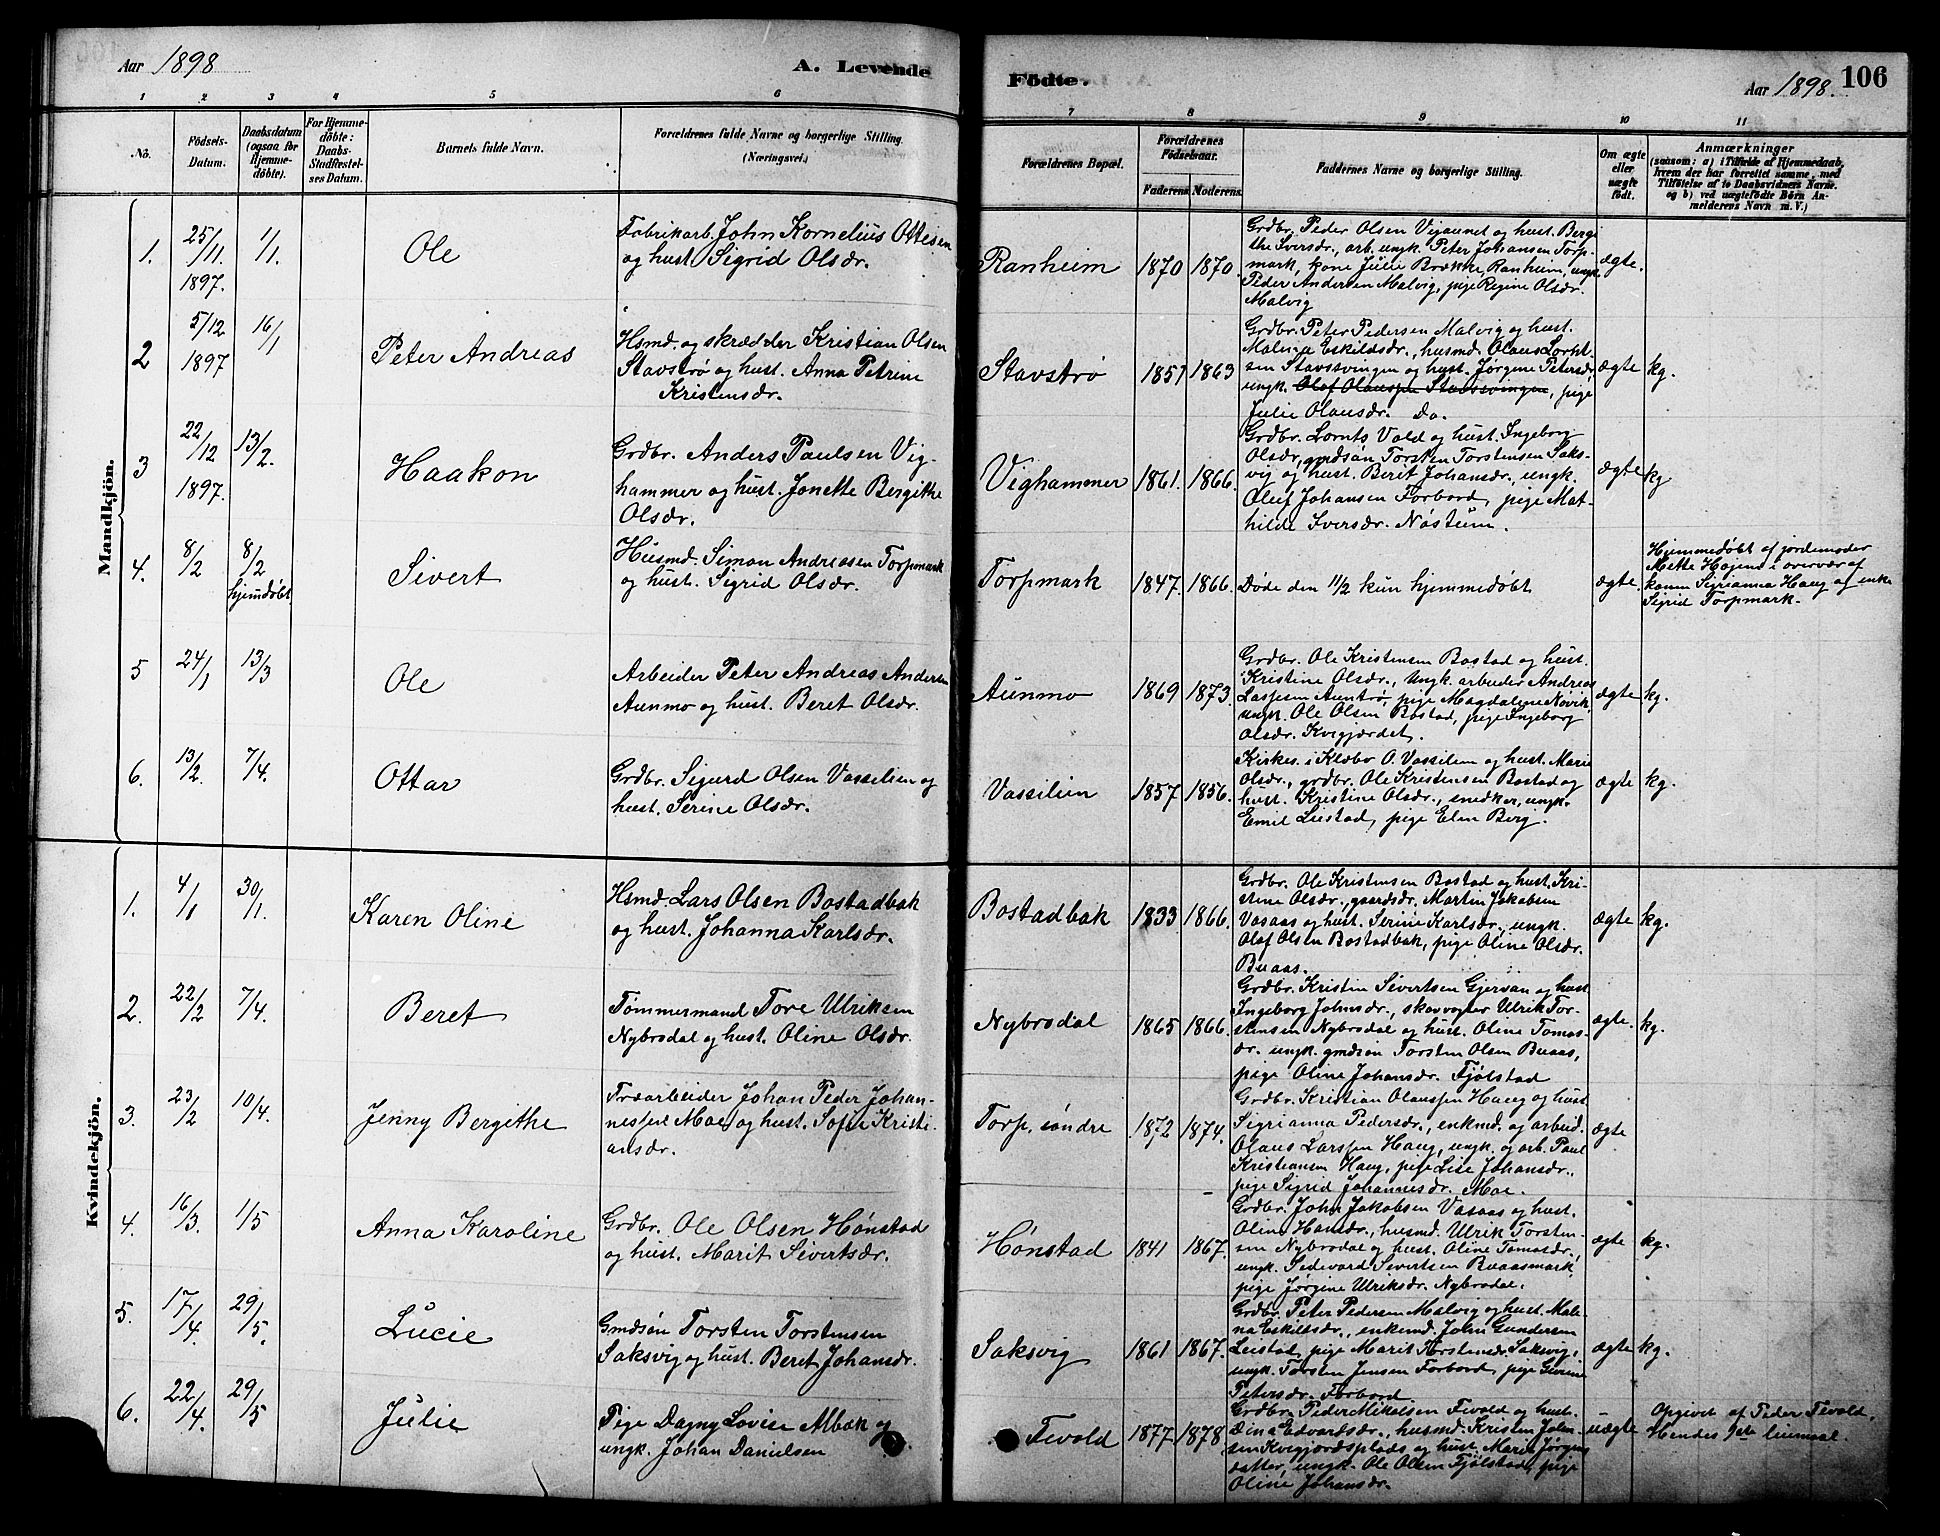 Aar 1898
A. Levende
1 2 3 4 5 6
No.
Födsels-
Datum.
Daabsdatum
(ogsaa for
Hjemme-
döbte).
For Hjemme-
döbte:
Daabs-
Stadfæstel-
ses Datum.
Barnets fulde Navn.
Forældrenes fulde Navne og borgerlige Stilling.
(Næringsvei.)
Mandkjön.
1. 25/11 1897. 1/1. Ole
Fabrikarb. John Kornelius Ottesen
og hust. Sigrid Olsdr.
2 5/12 1897 16/1 Peter Andreas
Hsmd. og skrædder Kristian Olsen
Stavstrø og hust. Anna Petrine
Kristensdr.
3 22/12 1897. 13/2. Haakon
Grdbr. Anders Paulsen Vig-
hammer og hust. Jonette Bergithe
Olsdr.
4. 8/2 8/2 hjemdöbt Sivert
Husmd. Simon Andreasen Torpmark
og hust. Sigrid Olsdr.
5 24/1 13/3 Ole
Arbeider Peter Andreas Andersen
Aunmo og hust. Beret Olsdr.
6. 13/2. 7/4. Ottar
Grdbr. Sigurd Olsen Vassilien og
hust. Serine Olsdr.
Kvindekjön.
1. 4/1 30/1. Karen Oline
Hsmd. Lars Olsen Bostadbak
og hust. Johanna Karlsdr.
2. 22/2 7/4. Beret
Tømmermand Tore Ulriksen
Nybrodal og hust. Oline Olsdr.
3. 23/2 10/4. Jenny Bergithe
Træarbeider Johan Peder Johan-
nessen Moe og hust. Sofie Kristi-
ansdr.
4. 16/3. 1/5 Anna Karoline
Grdbr. Ole Olsen Hønstad
og hust. Marit Sivertsdr.
5. 17/4 29/5. Lucie
Gmdsön Torsten Torstensen
Saksvig og hust. Beret Johansdr.
6. 22/4. 29/5 Julie
Pige Dagny Lovise Albæk og
ungk. Johan Danielsen
Födte.
Aar 1898. 106
7 8 9 10 11
Forældrenes Bopæl.
Forældrenes
Födselsaar.
Faderens. Moderens.
Faddernes Navne og borgerlige Stilling.
Om ægte
eller
uægte
födt.
Anmærkninger
(saasom: a) i Tilfælde af Hjemmedaab,
hvem der har forrettet samme, med
Tilföielse af to Daabsvidners Navne.
og b) ved uægtefödte Börn An-
melderens Navn m. V.)
Ranheim 1870 1870.
Grdbr. Peder Olsen Vigaunet og hust. Bergi-
the Iversdr., arb. ungk. Peter Johansen Torp-
mark, kone Julie Brække, Ranheim, ungk.
Peder Andersen Malvig, pige Regine Olsdr.
Malvig
ægte.
Stavstrø 1857 1863
Grdbr. Peter Pedersen Malvig og hust.
Malena Eskildsdr., husmd. Olaus Lornt-
sen Stavssvingen og hust. Jørgine Petersdr.
ungk. Olaf Olaussen Stavssvingen, pige
Julie Olausdr. Do.
ægte kg.
Vighammer 1861. 1866.
Grdbr. Lornts Vold og hust. Ingeborg
Olsdr, gmdsön Torsten Torstensen Saks-
vig og hust. Beret Johansdr., ungk.
Oluf Johansen Forbord, pige Mat-
hilde Iversdr. Nøstum.
ægte kg
Torpmark 1847. 1866.
Døde den 11/2 kun hjemmedöbt
ægte
Hjemmedöbt af jordemoder
Mette Højem i overvær af
konen Sigrianna Haug og enke
Sigrid Torpmark.
Aunmo 1869 1873.
Grdbr. Ole Kristensen Bostad og hust.
Kristine Olsdr., ungk. arbeider Andreas
Lassesen Auntrø, pige Magdalene Novik,
ungk. Ole Olsen Bostad, pige Ingeborg
Olsdr. Kvigjærdet.
ægte kg.
Vassilien 1857 1856.
Kirkes. i Klæbu O. Vassilien og hust. Marie
Olsdr., grdbr. Ole Kristensen Bostad og
hust. Kristine Olsdr., snedker, ungk.
Emil Leistad, pige Elen Berg.
ægte kg.
Bostadbak 1833 1866.
Grdbr. Ole Kristensen Bostad og hust. Kri-
stine Olsdr., gaardsdr. Martin Jakobsen
Vasaas og hust. Serine Karlsdr., ungk.
Olaf Olsen Bostadbak, pige Oline Olsdr.
Buaas.
ægte kg.
Nybrodal 1865 1866.
Grdbr. Kristen Sivertsen Gjervan og hust
Ingeborg Johnsdr., skovvogter Ulrik Tor-
stensen Nybrodal og hust. Oline Tomas-
dr. ungk. gmdsön Torsten Olsen Buaas,
pige Oline Johansdr. Fjølstad
ægte. kg.
Torp, söndre 1872 1874.
Grdbr. Kristian Olaussen Haug og hust
Sigrianna Pedersdr., enkmd. og arbeid.
Olaus Larssen Haug, ungk. og arb. Paul
Kristiansen Haug, pige Lise Johansdr.,
pige Sigrid Johannesdr. Moe.
ægte
Hønstad 1841 1867.
Grdbr. John Jakobsen Vasaas og hust.
Oline Hansdr., husmd. Ulrik Torsten-
sen Nybrodal og hust. Oline Tomasdr.,
ungk. Sedevard Sivertsen Buaasmark,
pige Jørgine Ulriksdr. Nybrodal.
ægte kg.
Saksvig 1861 1867.
Grdbr. Peter Pedersen Malvig og hust. Male-
na Eskildsdr., enkemd. John Gundersen
Leistad, pige Marit Torstensdr. Saksvig,
ungk. Torsten Jensen Forbord, pige Gurine
Petersdr. Forbord
ægte kg.
Fevold 1877. 1878
Grdbr. Peder Mikalsen Fevold og hust.
Dina Edvardsdr., husmd. Kristen John-
sen Kvigjerdsplads og hust. Marie Jørgens
datter, ungk. Ole Olsen Fjølstad, pige
Oline Johansdr.
uægte
Opgivet af Peder Fevold.
Hendes 1ste leiermaal.